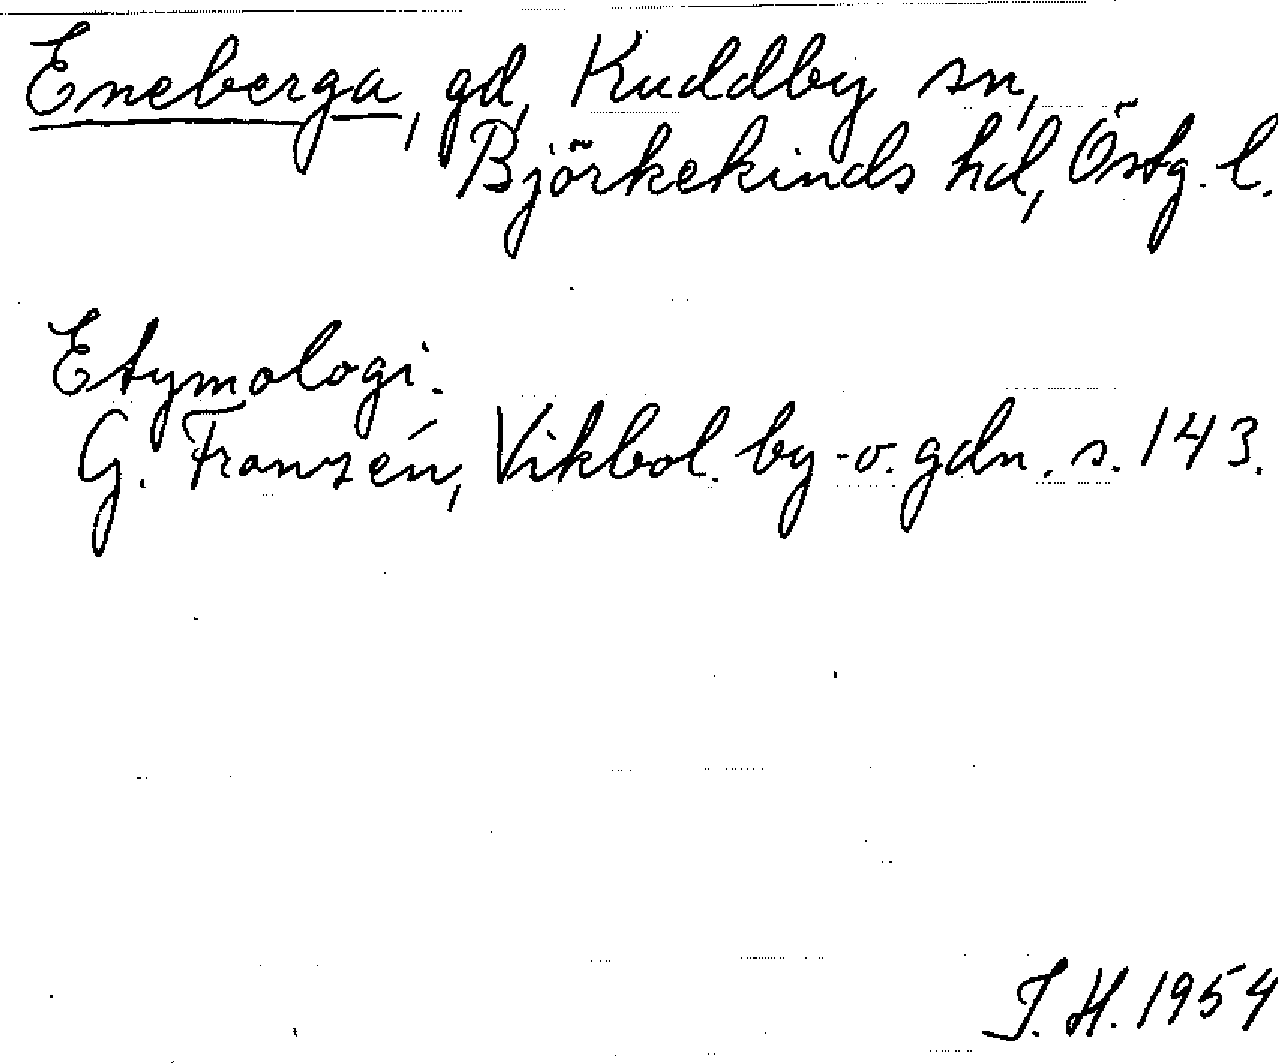 Eneberga, gd, Kuddby sn,
Björkekinds hd, Östg. l.
Etymologi.
G. Franzén, Vikbol. by- o. gdn. s. 143.
J. H. 1954